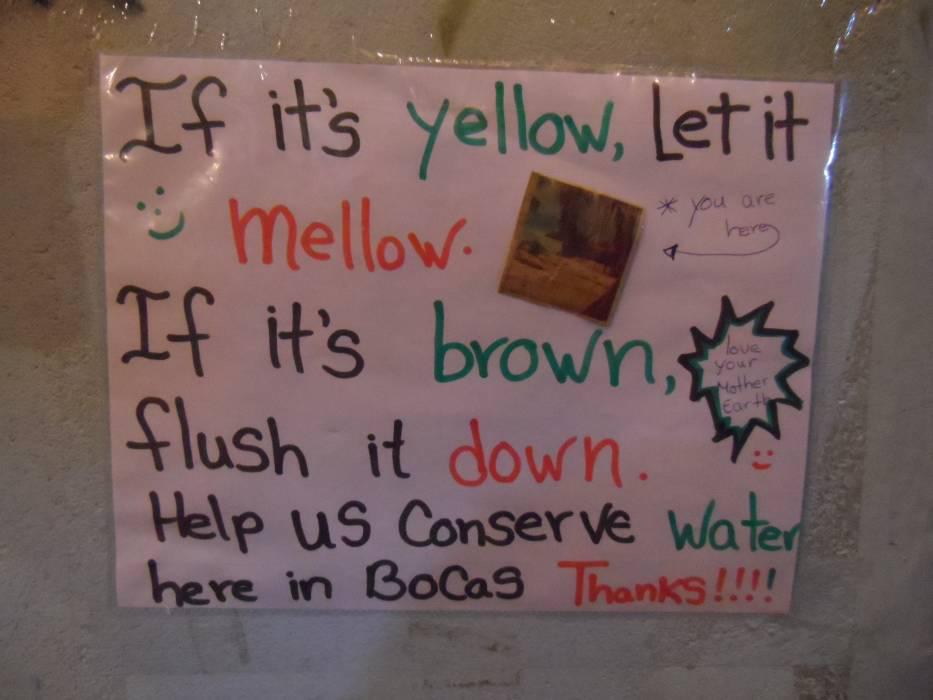 If it's yellow, Let it
mellow.
* you are
here
If it's brown,
love
your
Mother
Earth
flush it down.
Help us Conserve Water
here in BoCas Thanks!!!!